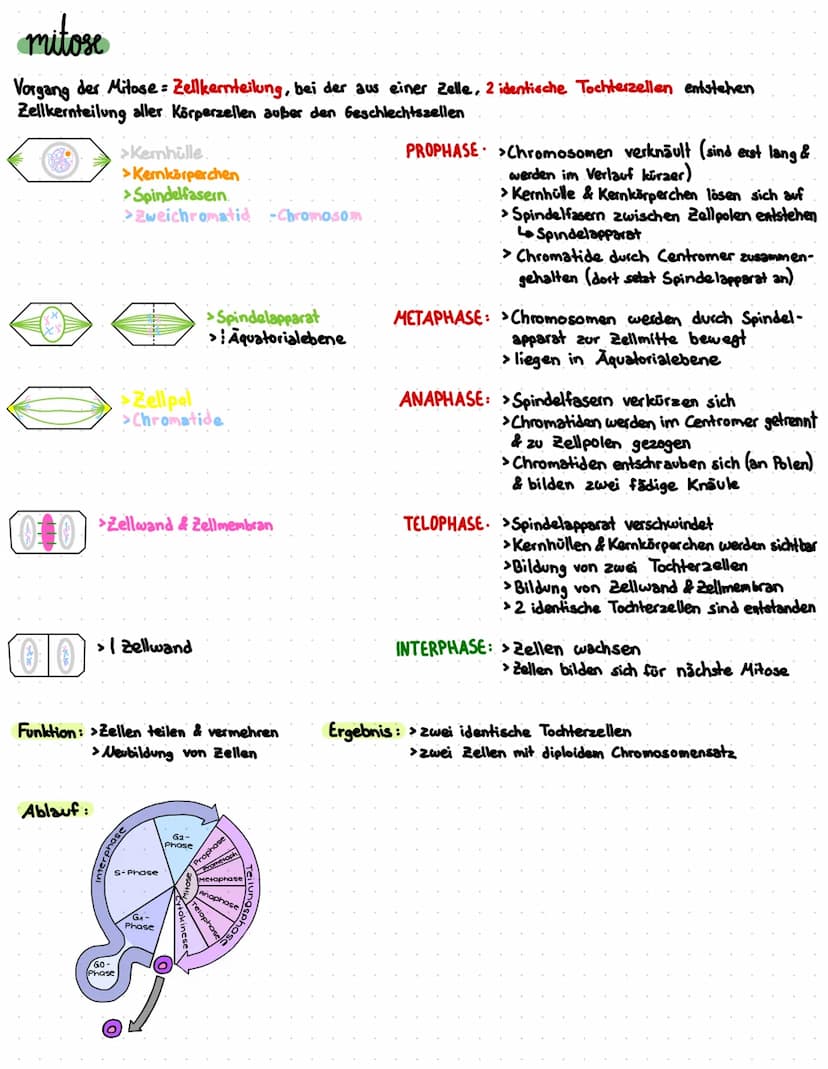 mitose
Vorgang der Mitose = Zellkernteilung, bei der aus einer Zelle, 2 identische Tochterzellen entstehen
Zellkernteilung aller Körperzellen außer den Geschlechtszellen
>Kernhülle
>Kernkörperchen
>Spindelfasern
>Zweichromatid -Chromosom
PROPHASE: >Chromosomen verknäult (sind erst lang &
werden im Verlauf kürzer)
>Kernhülle & Kernkörperchen lösen sich auf
>Spindelfasern zwischen Zellpolen entstehen
↳Spindelapparat
> Chromatide durch Centromer zusammen-
gehalten (dort setzt Spindelapparat an)
>Spindelapparat
>¦ Äquatorialebene
METAPHASE: >Chromosomen werden durch Spindel-
apparat zur Zellmitte bewegt
> liegen in Äquatorialebene
>Zellpol
>Chromatide
ANAPHASE: >Spindelfasern verkürzen sich
>Chromatiden werden im Centromer getrennt
& zu Zellpolen gezogen
>Chromatiden entschrauben sich (an Polen)
& bilden zwei fädige Knäule
>Zellwand & Zellmembran
TELOPHASE: >Spindelapparat verschwindet
>Kernhüllen & Kernkörperchen werden sichtbar
>Bildung von zwei Tochterzellen
>Bildung von Zellwand & Zellmembran
>2 identische Tochterzellen sind entstanden
> | Zellwand
INTERPHASE: >Zellen wachsen
>Zellen bilden sich für nächste Mitose
Funktion: >Zellen teilen & vermehren
>Neubildung von Zellen
Ergebnis: >zwei identische Tochterzellen
>zwei Zellen mit diploidem Chromosomensatz
Ablauf:
Interphase
G2-
Phase
S-Phase
G1-
Phase
G0-
Phase
Mitose
Prophase
Metaphase
Anaphase
Telophase
Cytokinese
Teilungsphase